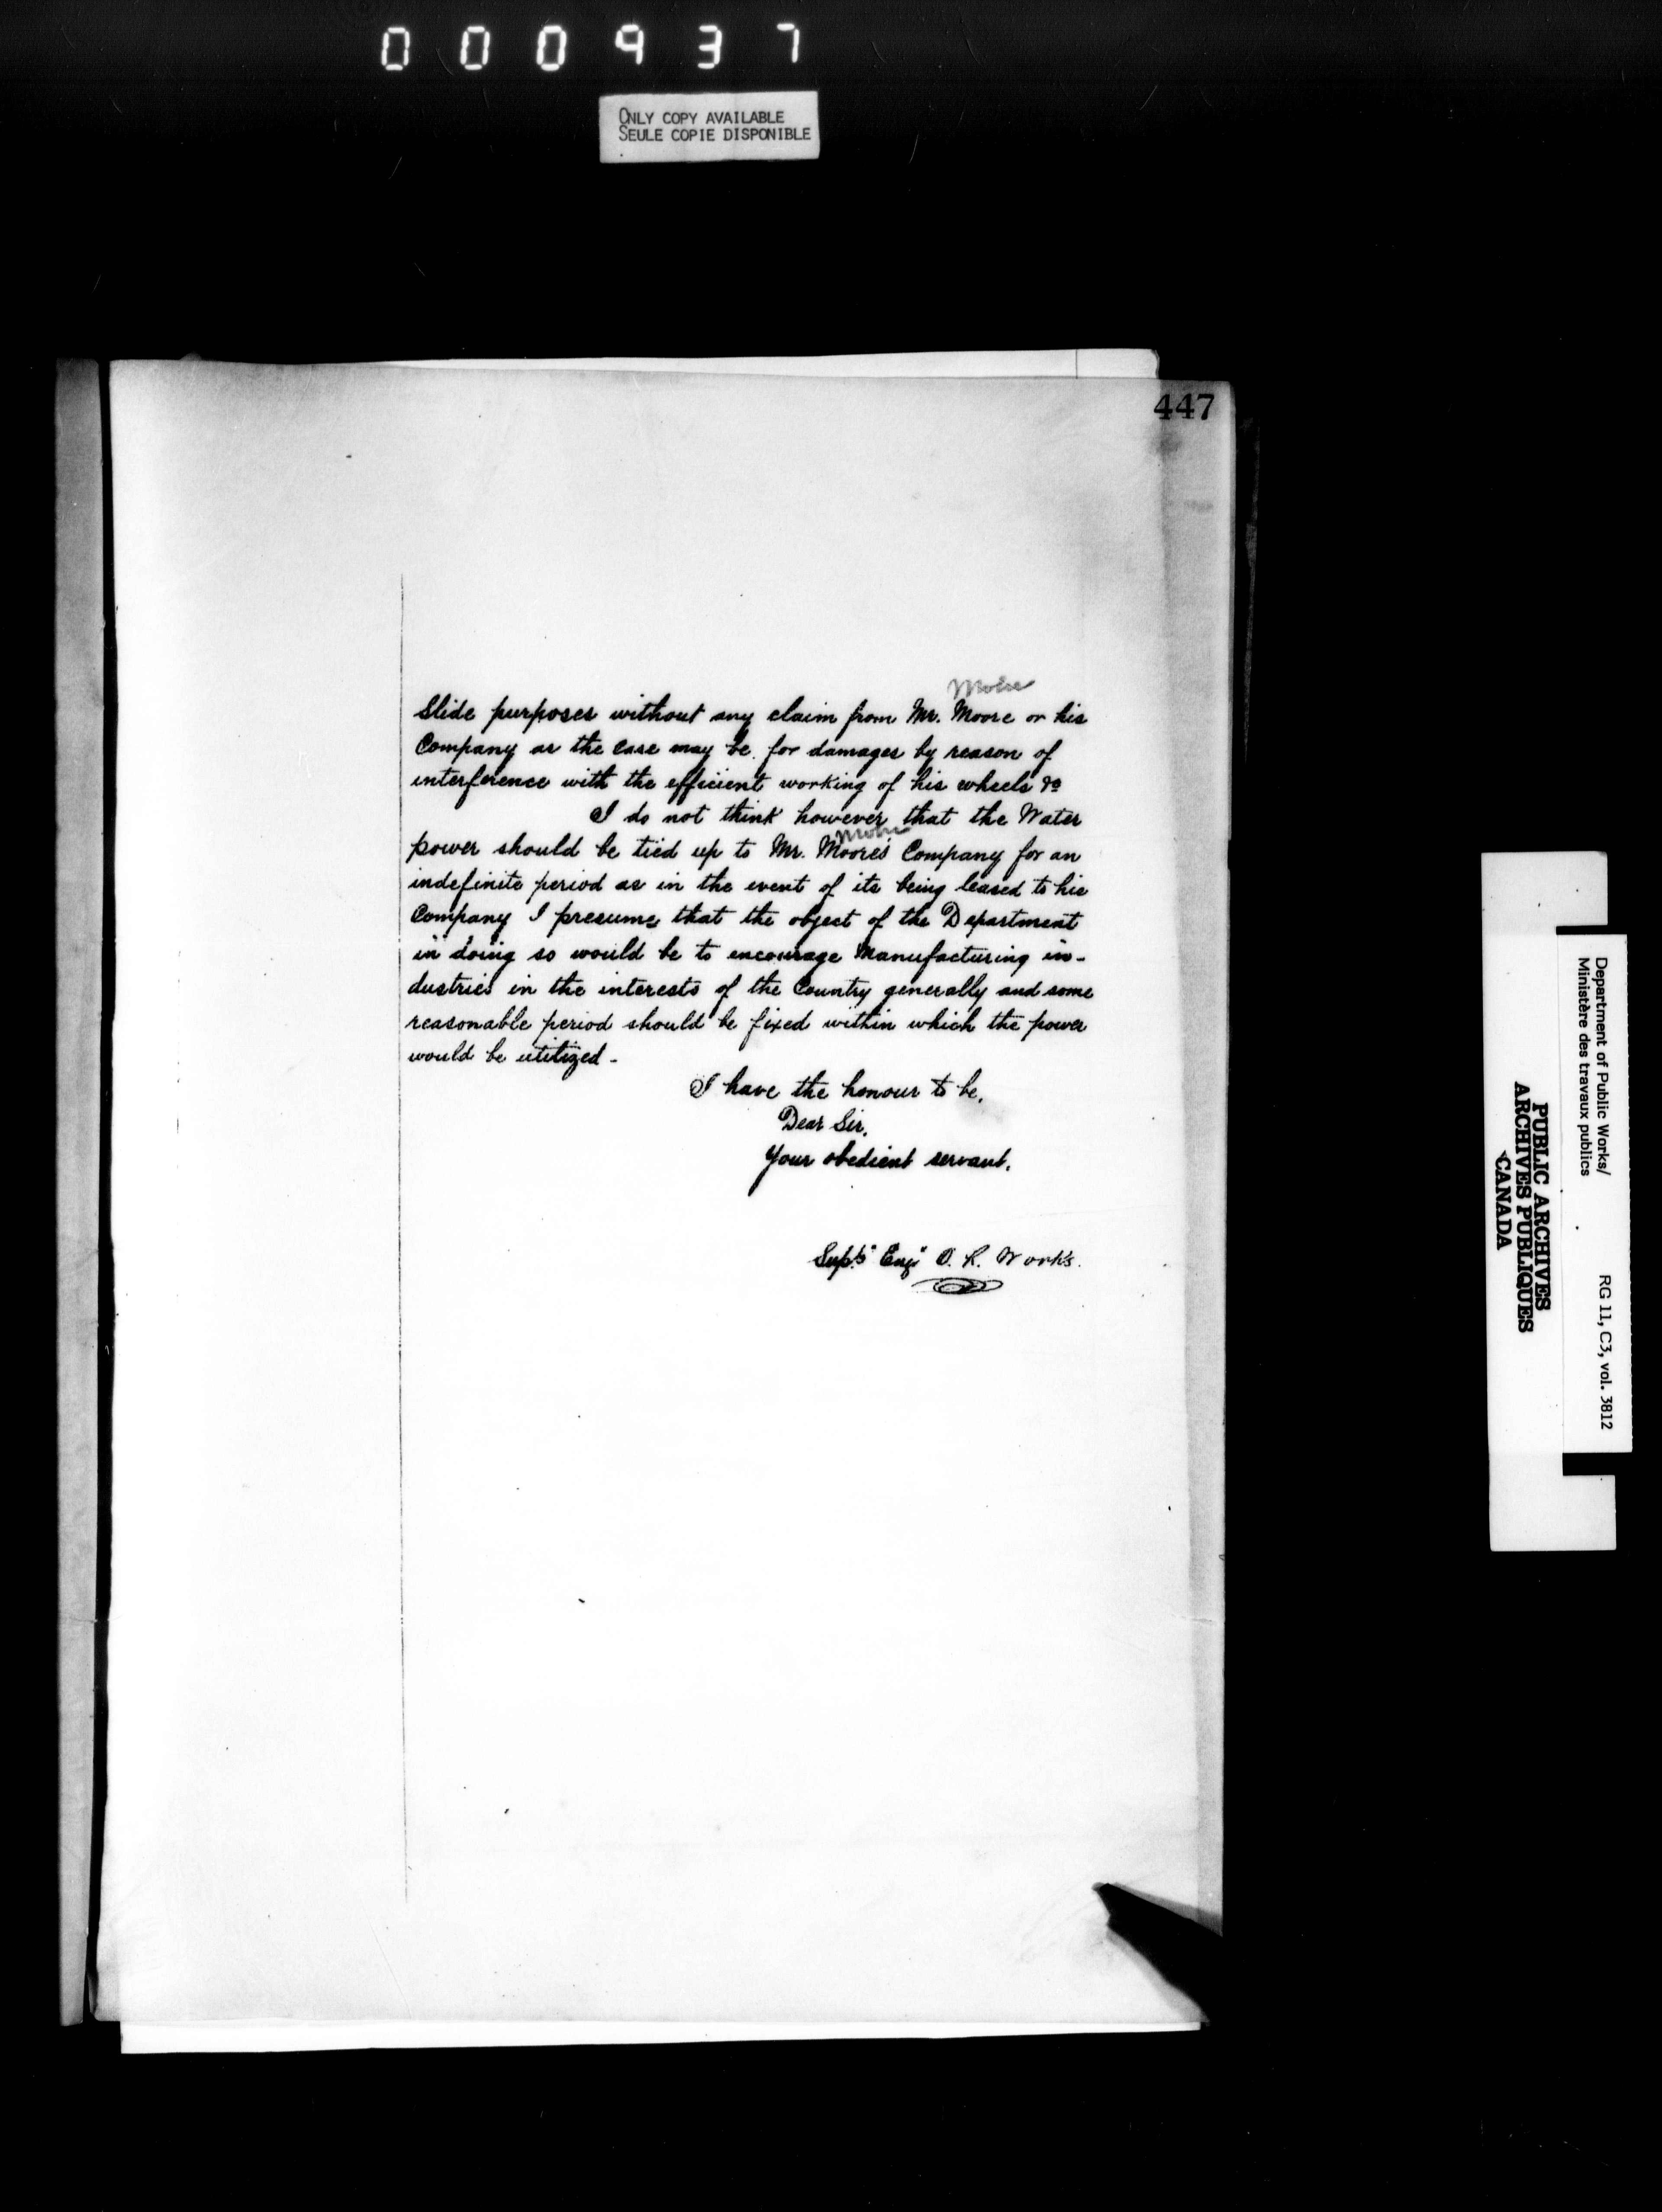 000937
ONLY COPY AVAILABLE
SEULE COPIE DISPONIBLE
447
Slide purposes without any claim from Mr. Moore or his
Company as the Case may be for damages by reason of
interference with the efficient working of his wheels &c
I do not think however that the Water
power should be tied up to Mr. Moore's Company for an
indefinite period as in the event of its being leased to his
Company I presume that the object of the Department
in doing so would be to encourage Manufacturing in-
dustries in the interests of the Country generally and some
reasonable period should be fixed within which the power
would be utilized-
I have the honour to be,
Dear Sir,
Your obedient servant,
Supt'g Eng'r O. R. Works.
Department of Public Works/
Ministère des travaux publics
RG 11, C3, vol. 3812
PUBLIC ARCHIVES
ARCHIVES PUBLIQUES
CANADA